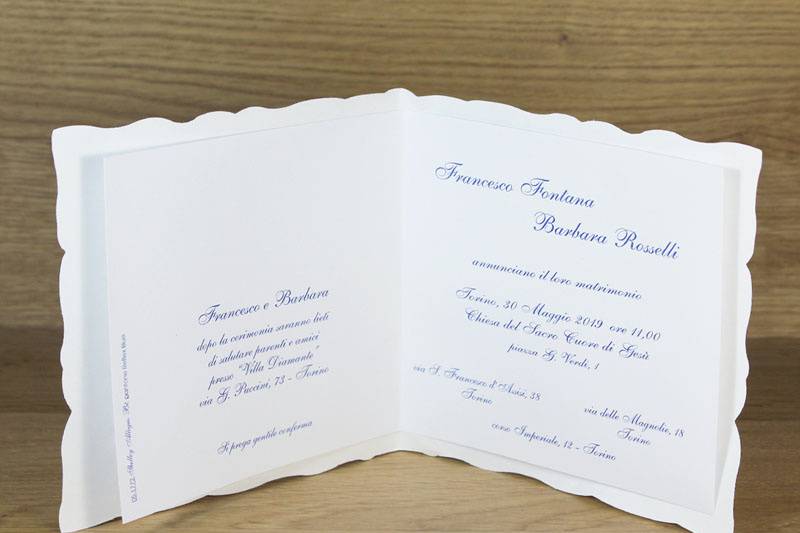 Francesco e Barbara
dopo la cerimonia saranno lieti
di salutare parenti e amici
presso "Villa Diamante"
via G. Puccini, 73 - Torino
Si prega gentile conferma
Shelley Allegro Bt pantone Reflex Blue
Francesco Fontana
Barbara Rosselli
annunciano il loro matrimonio
Torino, 30 Maggio 2019 ore 11,00
Chiesa del Sacro Cuore di Gesù
piazza G. Verdi, 1
via S. Francesco d'Assisi, 38
Torino
via delle Magnolie, 18
Torino
corso Imperiale, 12 - Torino